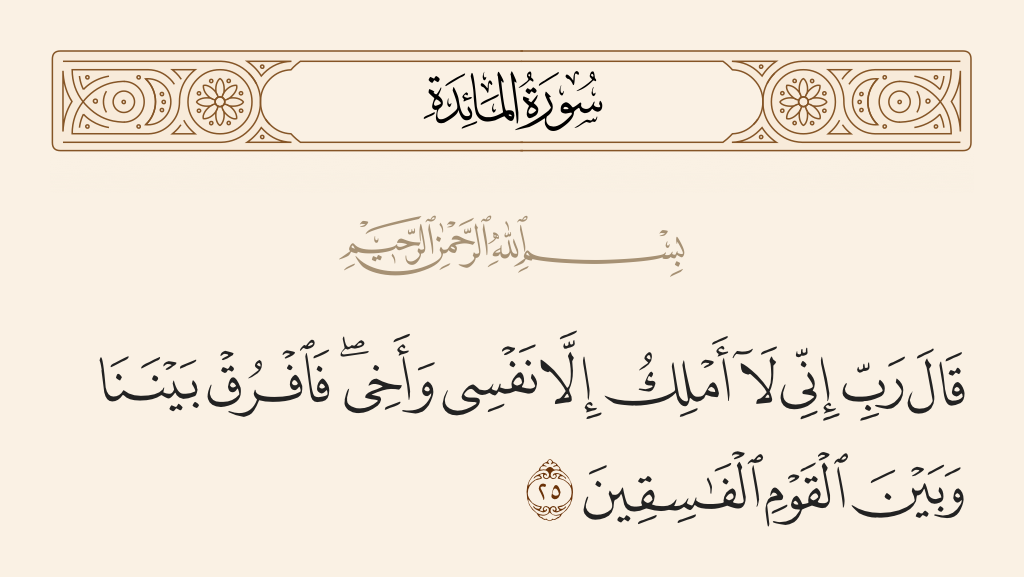 سُورَةُ المَائِدَةِ
بِسْمِ ٱللَّهِ ٱلرَّحْمَٰنِ ٱلرَّحِيمِ
قَالَ رَبِّ إِنِّى لَآ أَمْلِكُ إِلَّا نَفْسِى وَأَخِى ۖ فَٱفْرُقْ بَيْنَنَا
وَبَيْنَ ٱلْقَوْمِ ٱلْفَـٰسِقِينَ ٢٥